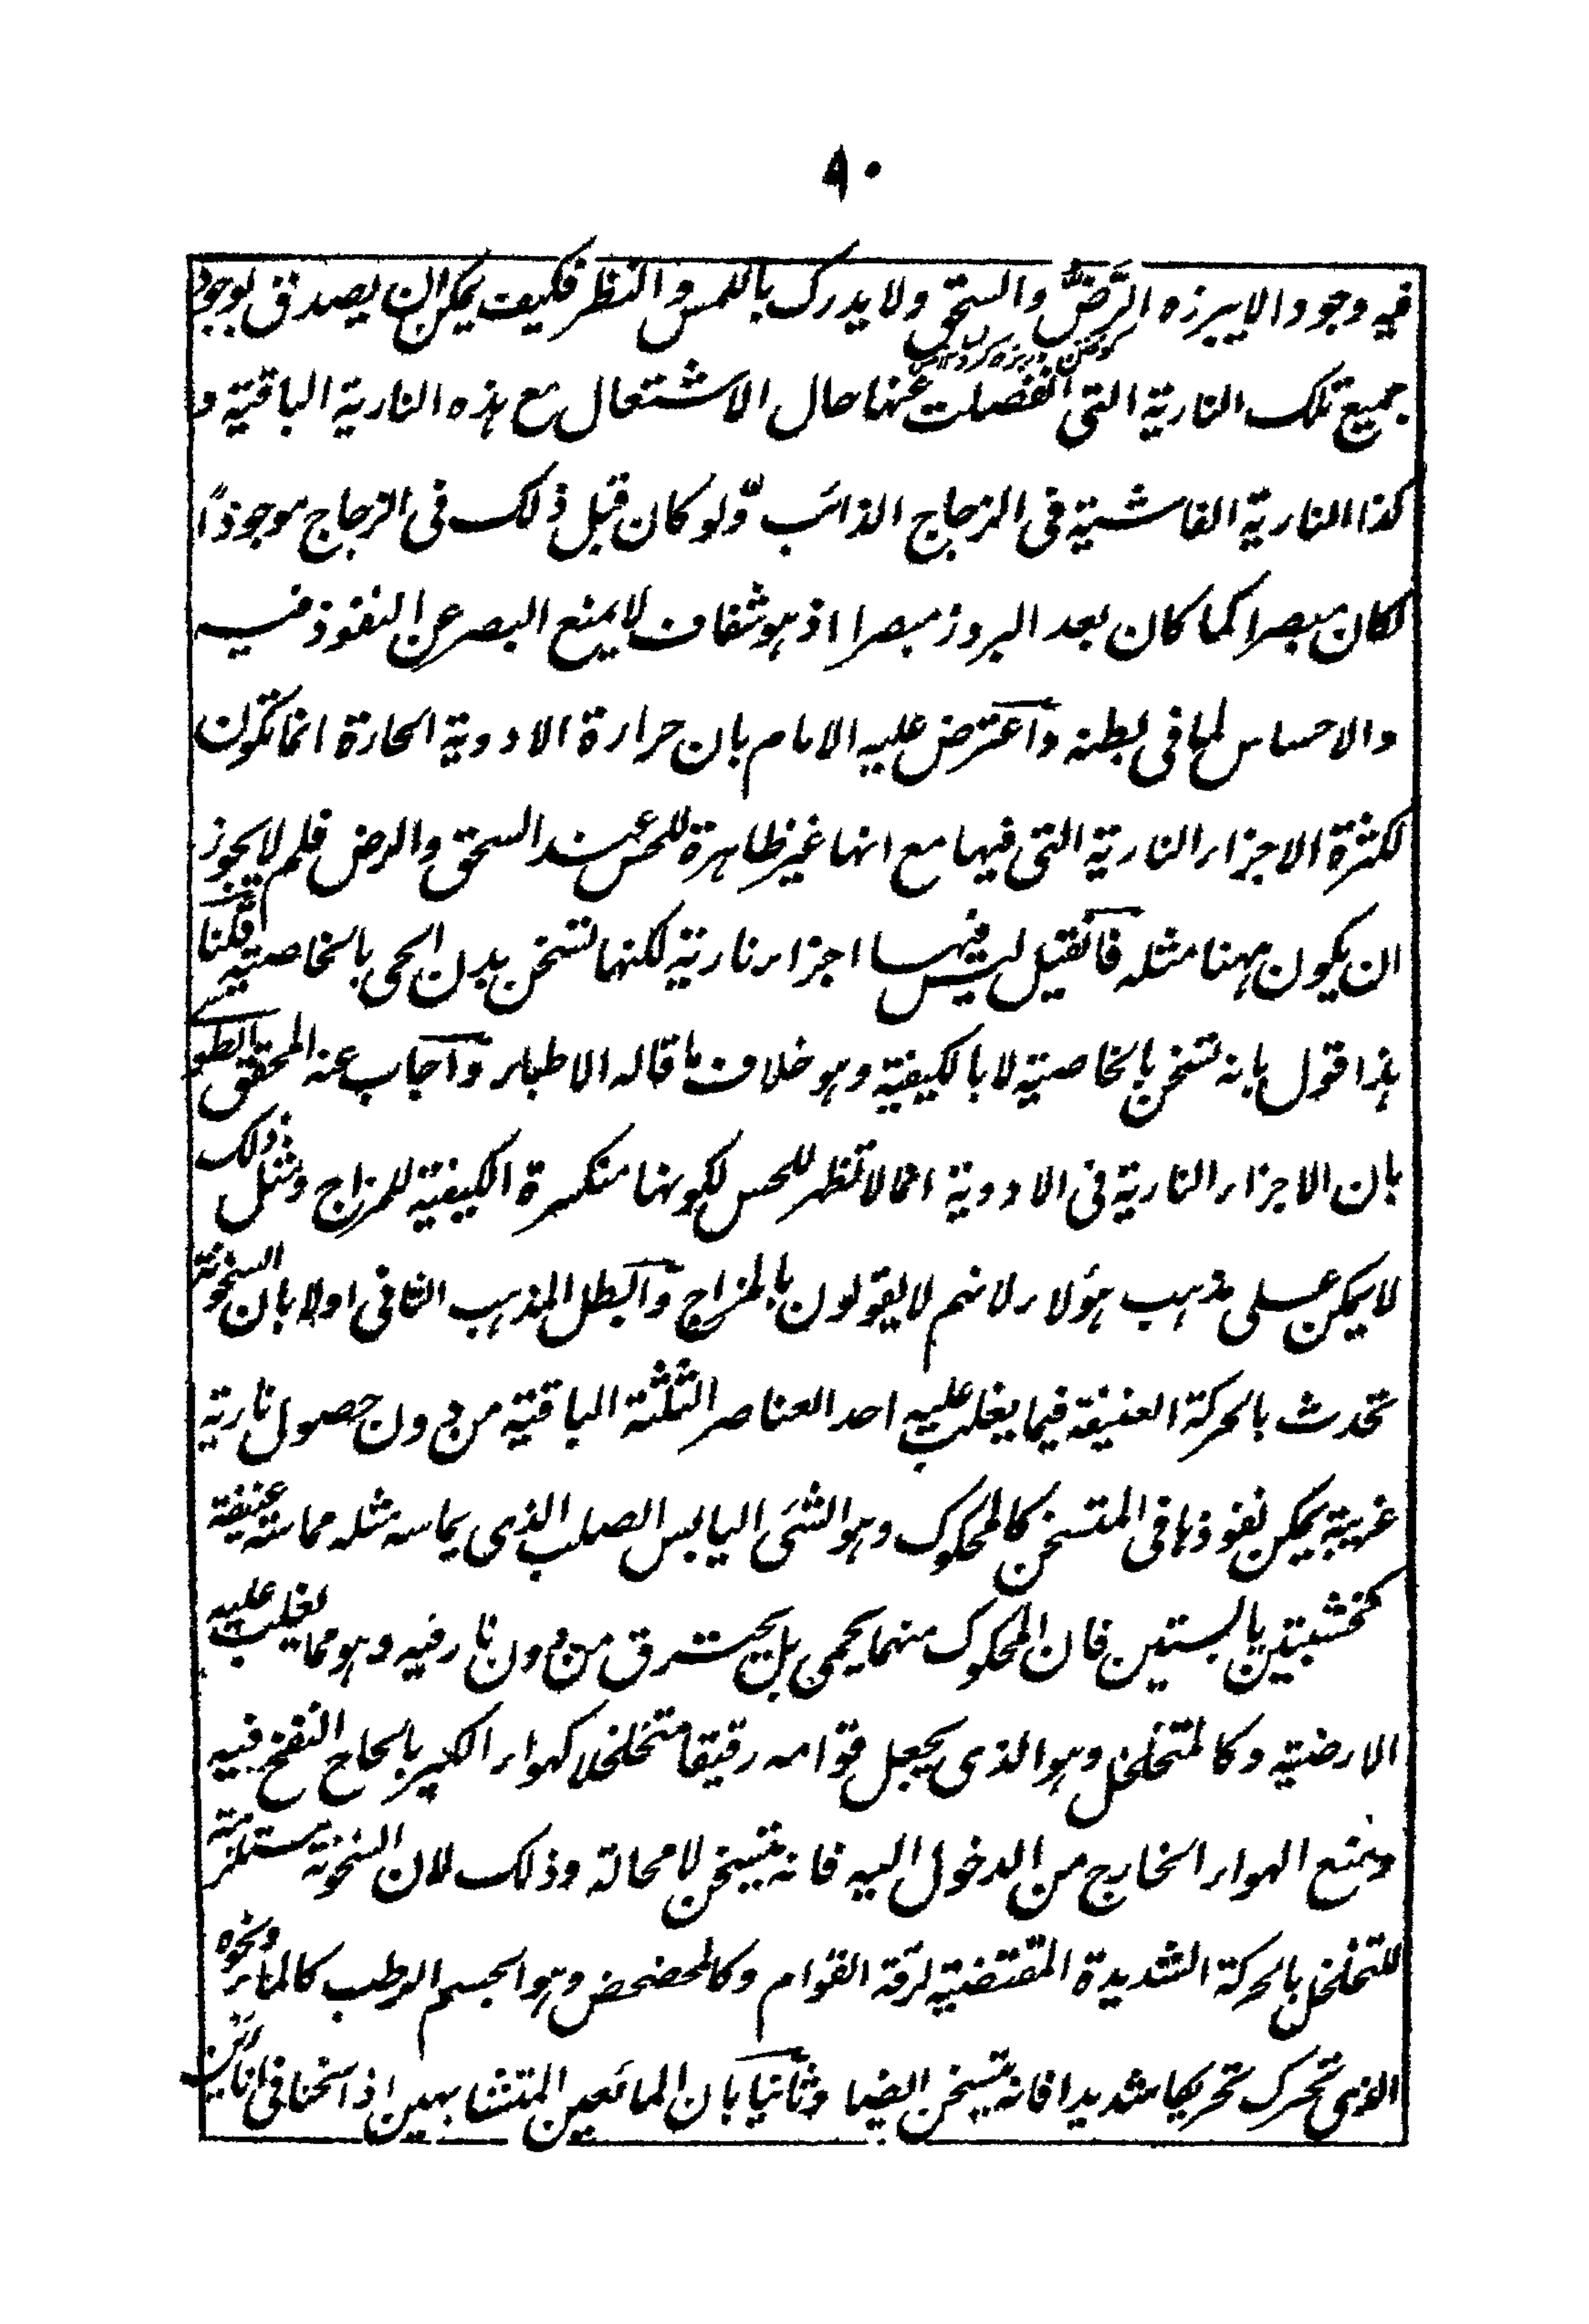 ٩٠
فيه وجودا لا يبرزه الرَّضّ والسحق ولا يدرك باللمس والنظر فكيف يمكن ان يصدق بوجود
جميع تلك النارية التى انفصلت عنها حال الاشتعال مع هذه النارية الباقية و
كذا النارية الفاشية فى الزجاج الذائب وّلو كان قبل ذلك فى الزجاج موجودًا
لكان مبصرا كما كان بعد البروز مبصرا اذ هو شفاف لا يمنع البصر عن النفوذ فيه
والاحساس لما فى بطنه وآعترض عليه الامام بان حرارة الادوية الحارة انما تكون
لكثرة الاجزاء النارية التى فيها مع انها غير ظاهرة للحس عند السحق والرض فلم لا يجوز
ان يكون ههنا مثله فآنقيل ليس فيها اجزاء نارية لكنها تسخن بدن الحى بالخاصية قلنا
هذا قول بانه تسخن بالخاصية لا بالكيفية وهو خلاف ما قاله الاطباء وآجاب عنه المحقق الطو
بان الاجزاء النارية فى الادوية انما لا تظهر للحس لكونها منكسرة الكيفية للمزاج ومثل ذلك
لا يمكن على مذهب هؤلاء لانهم لا يقولون بالمزاج وآبطل المذهب الثانى اولا بان السخونة
تحدث بالحركة العنيفة فيما يغلب عليه احد العناصر الثلثة الباقية من دون حصول نارية
غريبة يمكن نفوذها فى المتسخن كالمحكوك وهو الشئ اليابس الصلب الذى يماسه مثله مماسة عنيفة
كخشبتين يابستين فان المحكوك منهما يحمى بل يحترق من دون نار فيه وهو مما يغلب عليه
الارضية وكالمتخلخل وهو الذى يجعل قوامه رقيقا متخلخلا كهواء الكير بالحاح النفخ فيه
ومنع الهواء الخارج من الدخول اليه فانه يتسخن لا محالة وذلك لان السخونة مستلزمة
للتخلخل بالحركة الشديدة المقتضية لرقة القوام وكالمخضخض وهو الجسم الرطب كالماء ونحوه
الذى تحرك تحريكا شديدا فانه يتسخن ايضا وثآنيا بان المائعين المتشابهين اذا سخنا فى انائين